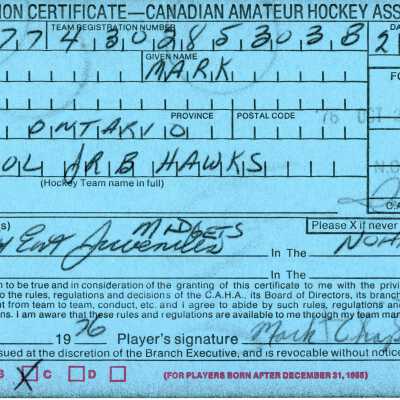 ION CERTIFICATE—CANADIAN AMATEUR HOCKEY ASS
TEAM REGISTRATION NUMBER
77430285303B
GIVEN NAME
MARK
PROVINCE POSTAL CODE
ONTARIO
76 OCT
OL JR B HAWKS
(Hockey Team name in full)
s) Please X if never
East Juveniles MIDGETS In the NOHA
In the
n to be true and in consideration of the granting of this certificate to me with the privi
to the rules, regulations and decisions of the C.A.H.A., its Board of Directors, its branch
nt from team to team, conduct, etc. and I agree to abide by such rules, regulations and
s. I am aware that these rules and regulations are available to me through my team man
1976 Player's signature Mark Chap
sued at the discretion of the Branch Executive, and is revocable without notice
B X C D (FOR PLAYERS BORN AFTER DECEMBER 31, 1955)